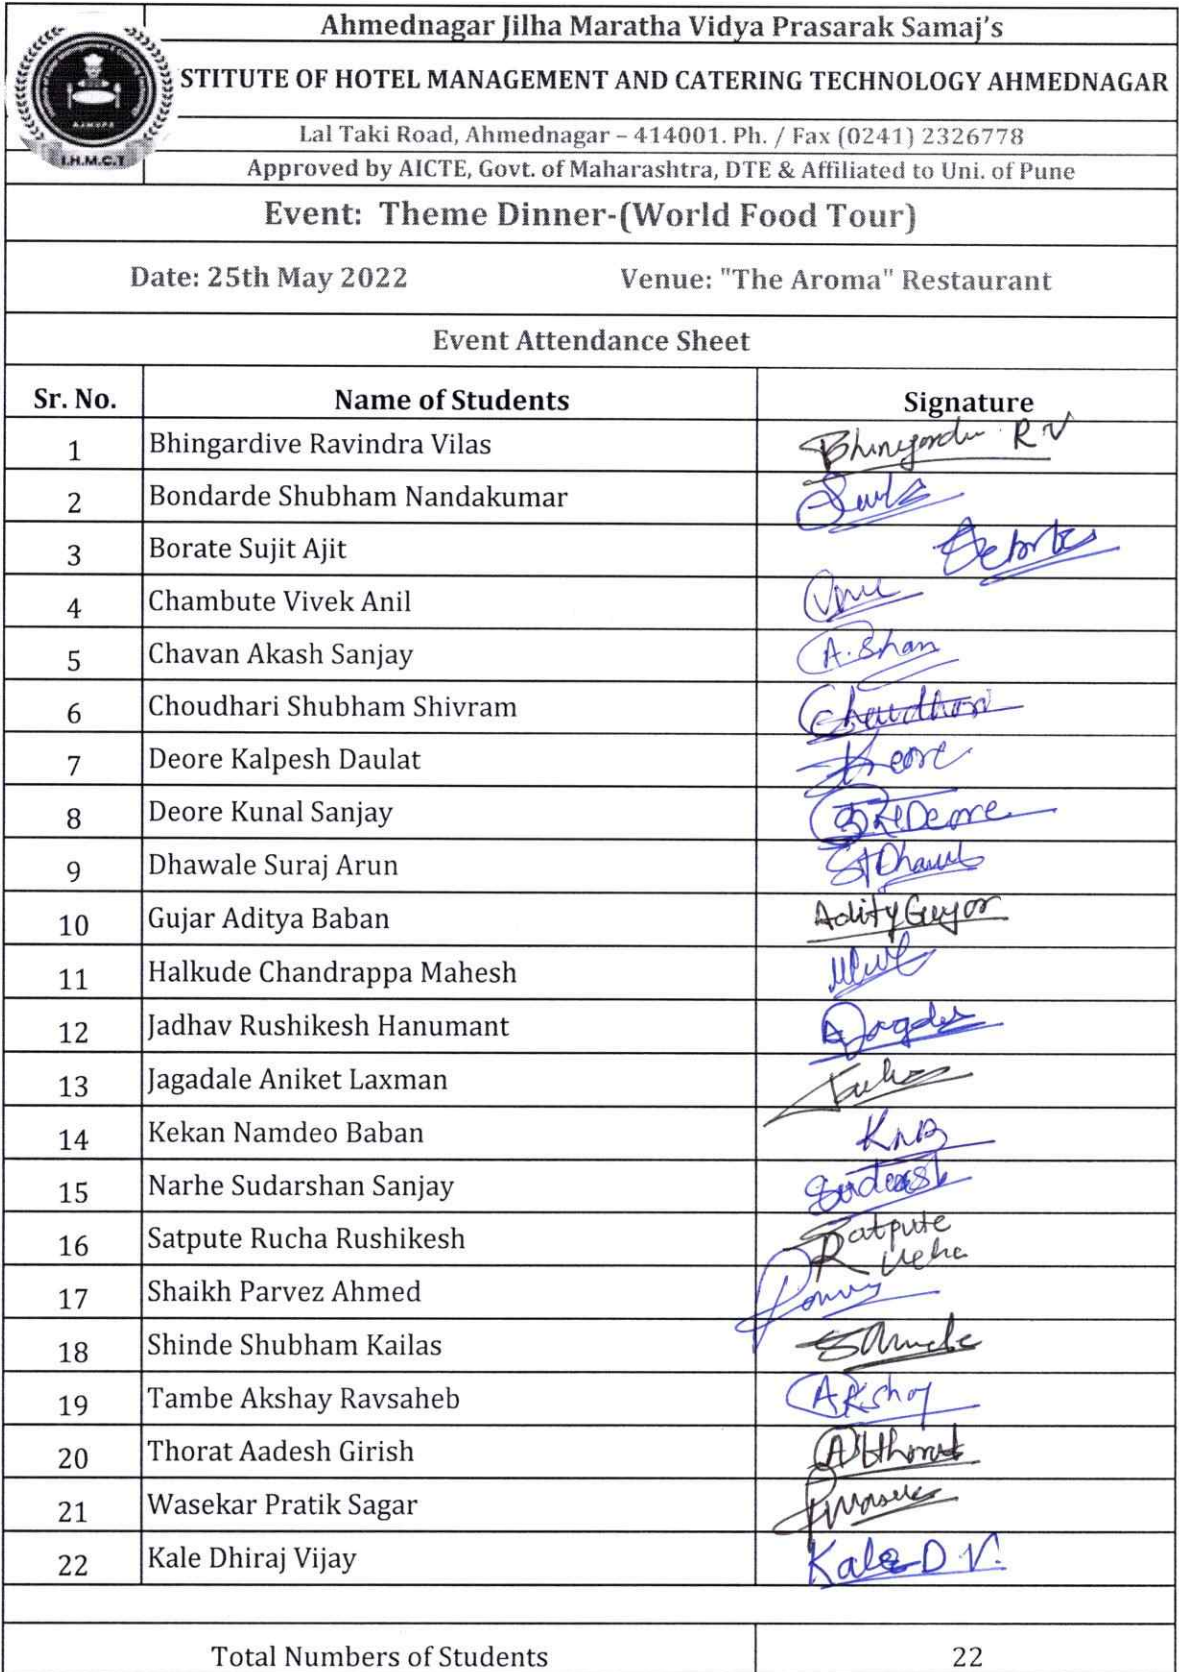 Ahmednagar Jilha Maratha Vidya Prasarak Samaj's
STITUTE OF HOTEL MANAGEMENT AND CATERING TECHNOLOGY AHMEDNAGAR
Lal Taki Road, Ahmednagar – 414001. Ph. / Fax (0241) 2326778
I.H.M.C.T
Approved by AICTE, Govt. of Maharashtra, DTE & Affiliated to Uni. of Pune
Event: Theme Dinner-(World Food Tour)
Date: 25th May 2022 Venue: "The Aroma" Restaurant
Event Attendance Sheet
Sr. No. Name of Students Signature
1 Bhingardive Ravindra Vilas R V
2 Bondarde Shubham Nandakumar
3 Borate Sujit Ajit
4 Chambute Vivek Anil
5 Chavan Akash Sanjay
6 Choudhari Shubham Shivram Chaudhari
7 Deore Kalpesh Daulat Deore
8 Deore Kunal Sanjay Deore
9 Dhawale Suraj Arun
10 Gujar Aditya Baban
11 Halkude Chandrappa Mahesh
12 Jadhav Rushikesh Hanumant
13 Jagadale Aniket Laxman
14 Kekan Namdeo Baban KNB
15 Narhe Sudarshan Sanjay
16 Satpute Rucha Rushikesh Satpute
17 Shaikh Parvez Ahmed
18 Shinde Shubham Kailas
19 Tambe Akshay Ravsaheb Akshay
20 Thorat Aadesh Girish
21 Wasekar Pratik Sagar
22 Kale Dhiraj Vijay Kale D V.
Total Numbers of Students 22